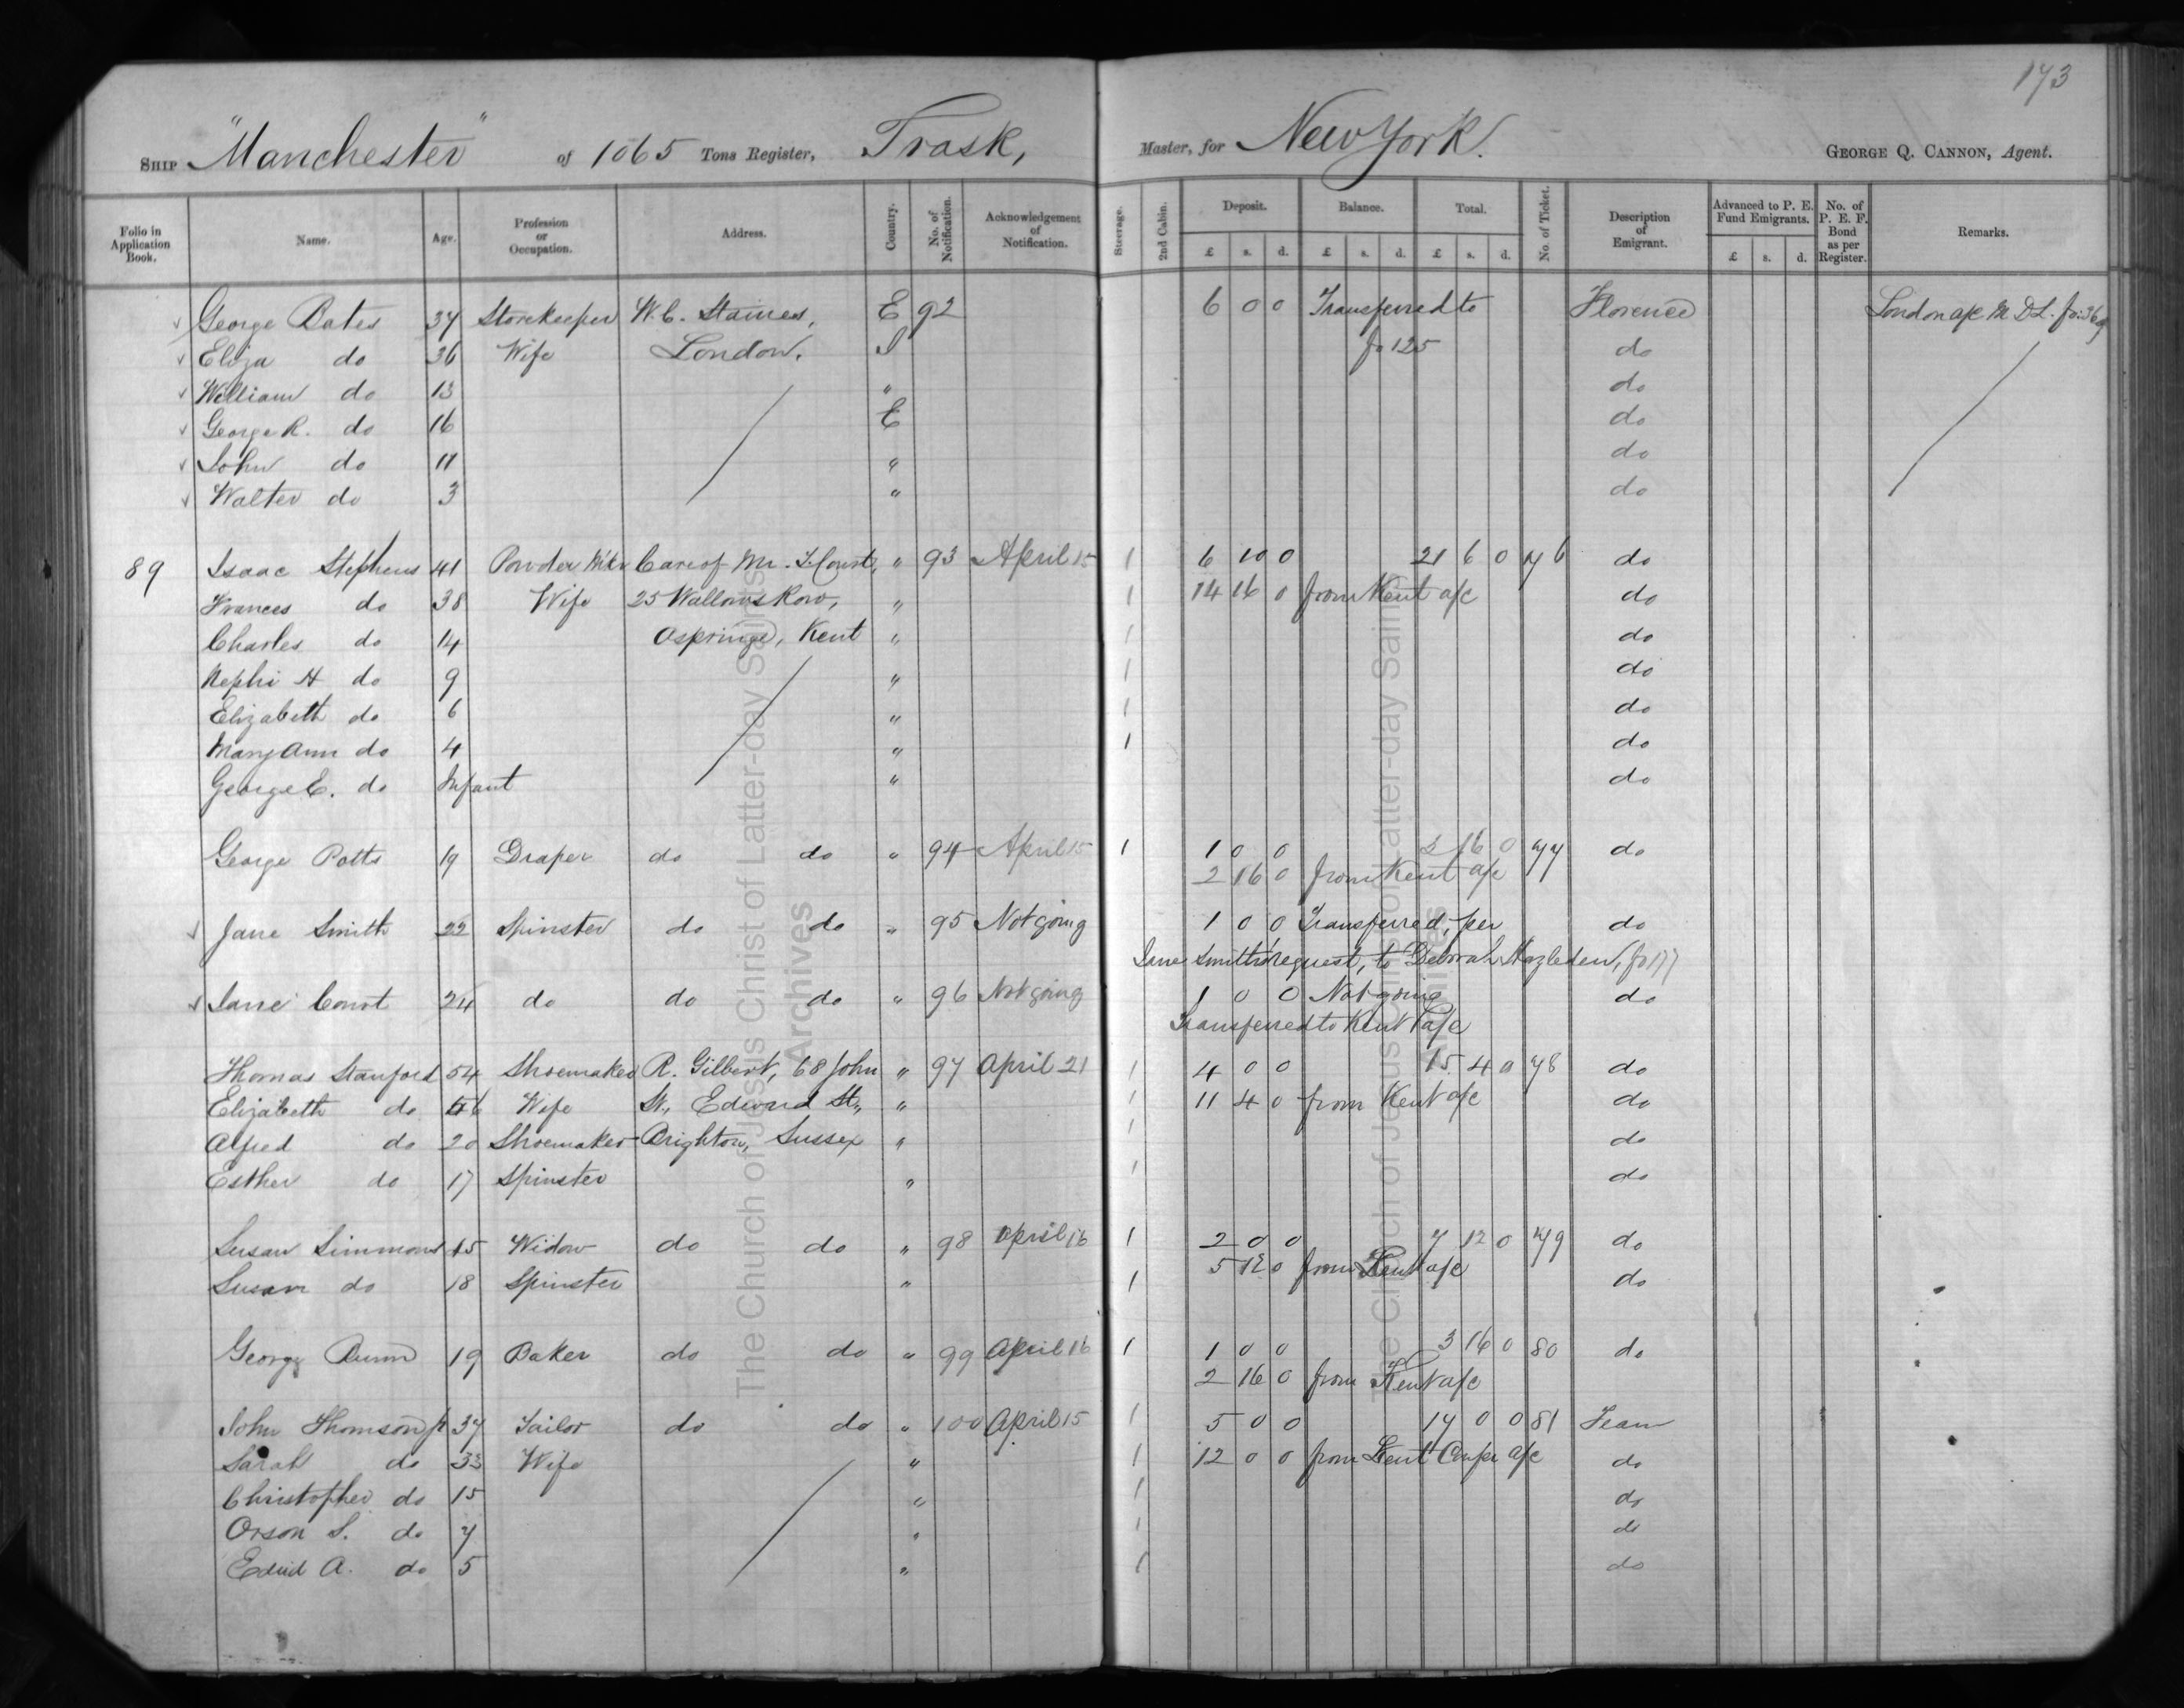 173
SHIP "Manchester" of 1065 Tons Register, Trask, Master, for New York. GEORGE Q. CANNON, Agent.
Folio in Application Book. Name. Age. Profession or Occupation. Address. Country. No. of Notification. Acknowledgement of Notification. Steerage. 2nd Cabin. Deposit. Balance. Total. No. of Ticket. Description of Emigrant. Advanced to P. E. Fund Emigrants. No. of P. E. F. Bond as per Register. Remarks.
£ s. d. £ s. d. £ s. d. £ s. d.
George Bates 37 Storekeeper W. C. Staines, E 92 6 0 0 Transferred to Florence London a/c M D L. fo: 369
Eliza do 36 Wife London, fo 125 do
William do 13 " do
George R. do 16 E do
John do 11 " do
Walter do 3 " do
89 Isaac Stephens 41 Powder Mkr Care of Mr. T. Court, " 93 April 15 1 6 10 0 21 6 0 76 do
Frances do 38 Wife 25 Wallows Row, " 1 14 16 0 from Kent a/c do
Charles do 14 Ospringe, Kent " 1 do
Nephi H do 9 " 1 do
Elizabeth do 6 " 1 do
Mary Ann do 4 " 1 do
George E. do Infant " do
George Potts 19 Draper do do " 94 April 15 1 1 0 0 3 16 0 77 do
2 16 0 from Kent a/c
Jane Smith 22 Spinster do do " 95 Not going 1 0 0 Transferred, per do
Jane Smith's request, to Deborah Hazleden, fo 177
Jane Court 24 do do do " 96 Not going 1 0 0 Not going do
Transferred to Kent a/c
Thomas Stanford 54 Shoemaker R. Gilbert, 68 John " 97 April 21 1 4 0 0 15 4 0 78 do
Elizabeth do 56 Wife St., Edward St., " 1 11 4 0 from Kent a/c do
Alfred do 20 Shoemaker Brighton, Sussex " 1 do
Esther do 17 Spinster " 1 do
Susan Simmons 45 Widow do do " 98 April 16 1 2 0 0 7 12 0 79 do
Susan do 18 Spinster " 1 5 12 0 from Kent a/c do
George Bunn 19 Baker do do " 99 April 16 1 1 0 0 3 16 0 80 do
2 16 0 from Kent a/c
John Thomson 37 Tailor do do " 100 April 15 1 5 0 0 17 0 0 81 Team
Sarah do 33 Wife " 1 12 0 0 from Kent Confce a/c do
Christopher do 15 " 1 do
Orson S. do 7 " 1 do
Edwd A. do 5 " 1 do
The Church of Jesus Christ of Latter-day Saints
Archives
The Church of Jesus Christ of Latter-day Saints
Archives